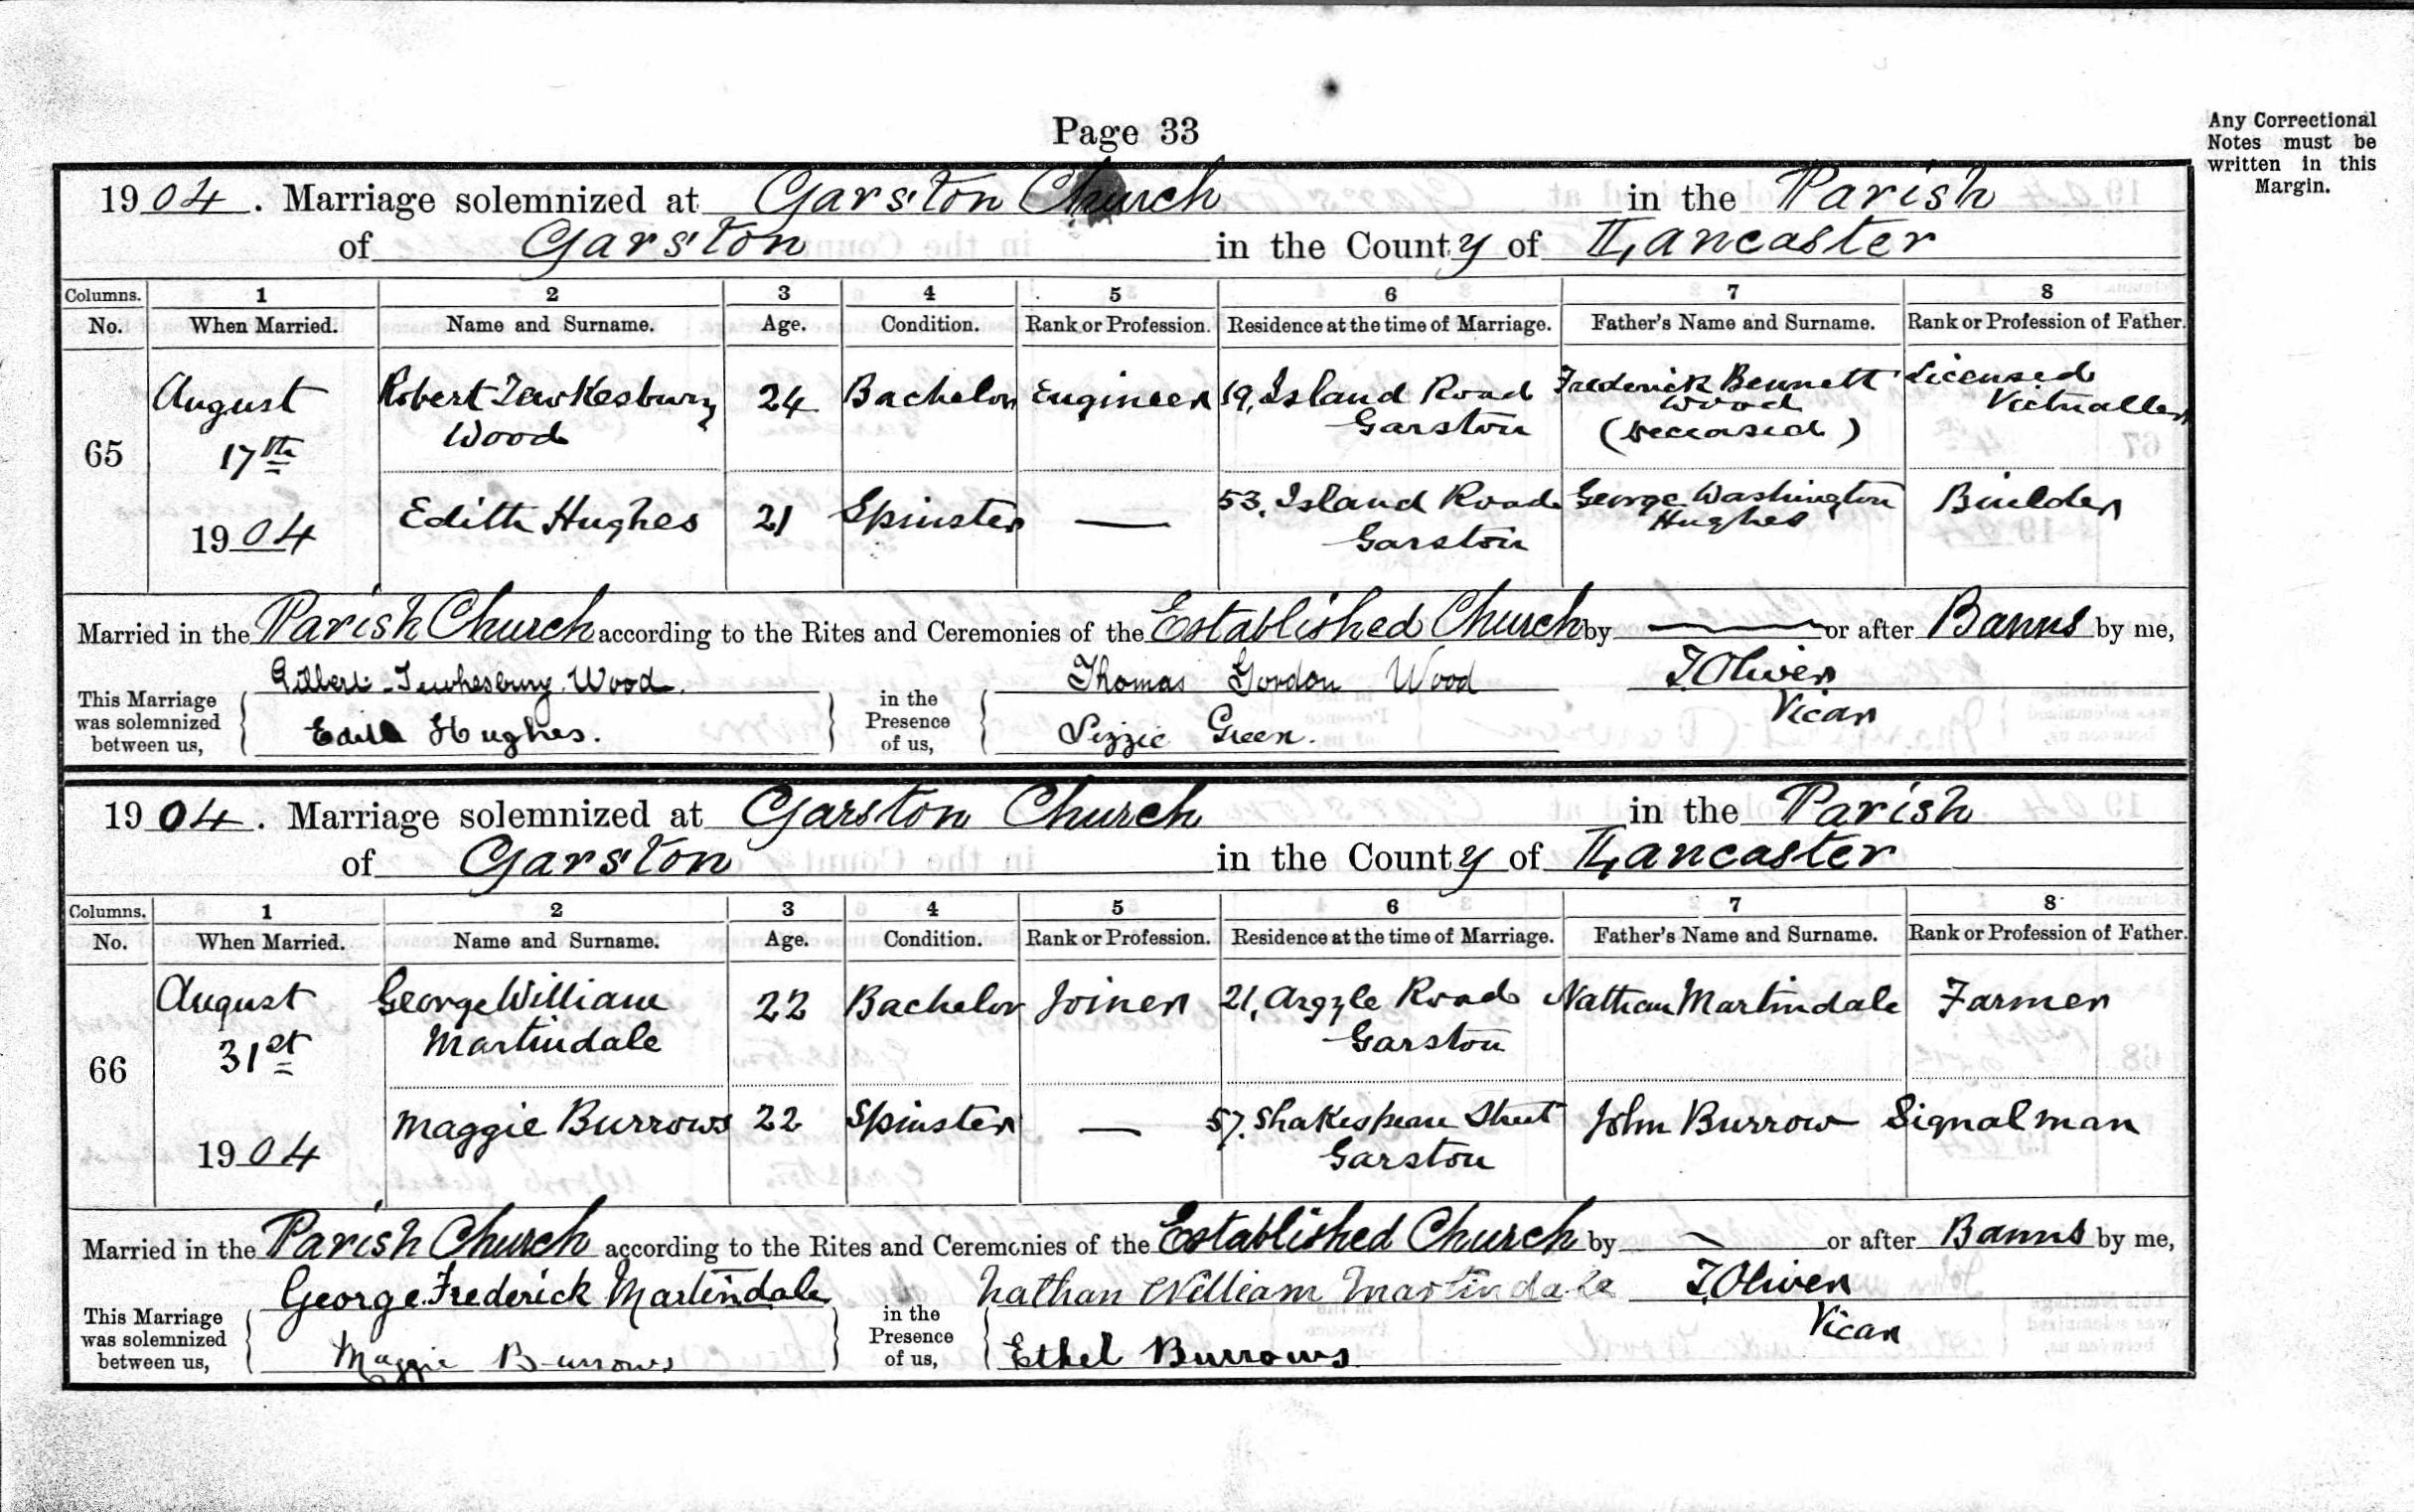 Page 33
Any Correctional
Notes must be
written in this
Margin.
1904. Marriage solemnized at Garston Church in the Parish
of Garston in the County of Lancaster
Columns. 1 2 3 4 5 6 7 8
No. When Married. Name and Surname. Age. Condition. Rank or Profession. Residence at the time of Marriage. Father's Name and Surname. Rank or Profession of Father.
August Robert Tewkesbury 24 Bachelor Engineer 19, Island Road Frederick Bennett Licensed
Wood Garston Wood Victualler
65 17th (Deceased)
1904 Edith Hughes 21 Spinster — 53, Island Road George Washington Builder
Garston Hughes
Married in the Parish Church according to the Rites and Ceremonies of the Established Church by — or after Banns by me,
This Marriage was solemnized between us, Tewkesbury Wood. in the Presence of us, Thomas Gordon Wood T. Oliver
Edith Hughes. Lizzie Green. Vicar
1904. Marriage solemnized at Garston Church in the Parish
of Garston in the County of Lancaster
Columns. 1 2 3 4 5 6 7 8
No. When Married. Name and Surname. Age. Condition. Rank or Profession. Residence at the time of Marriage. Father's Name and Surname. Rank or Profession of Father.
August George William 22 Bachelor Joiner 21, Argyle Road Nathan Martindale Farmer
31st Martindale Garston
66
1904 Maggie Burrows 22 Spinster — 57, Shakespeare Street John Burrow Signalman
Garston
Married in the Parish Church according to the Rites and Ceremonies of the Established Church by — or after Banns by me,
This Marriage was solemnized between us, George Frederick Martindale in the Presence of us, Nathan William Martindale T. Oliver
Maggie Burrows Ethel Burrows Vicar